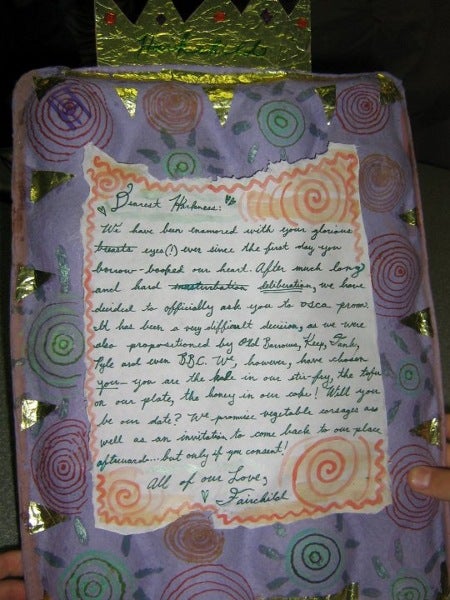 Harkness
Dearest Harkness:
We have been enamored with your glorious
hearts eyes(!) ever since the first day you
borrow-booped our heart. After much long
and hard masturbation deliberation, we have
decided to officially ask you to OSCA prom.
It has been a very difficult decision, as we were
also propositioned by Old Barrows, Keep, Tank,
Pyle and even BBC. We, however, have chosen
you - you are the kale in our stir-fry, the tofu
on our plate, the honey in our coke! Will you
be our date? We promise vegetable corsages as
well as an invitation to come back to our place
afterwards...but only if you consent!
All of our Love,
Fairchild